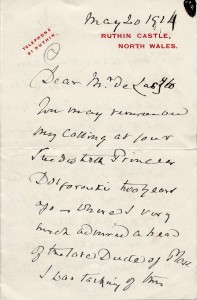 May 20 1914
RUTHIN CASTLE,
NORTH WALES.
TELEPHONE
81 RUTHIN.
Dear Mr de Laszlo
You may remember
my calling at your
Studio with Princess
Dolgorouki two years
ago – where I very
much admired a head
of the late Duke of
I was talking of this